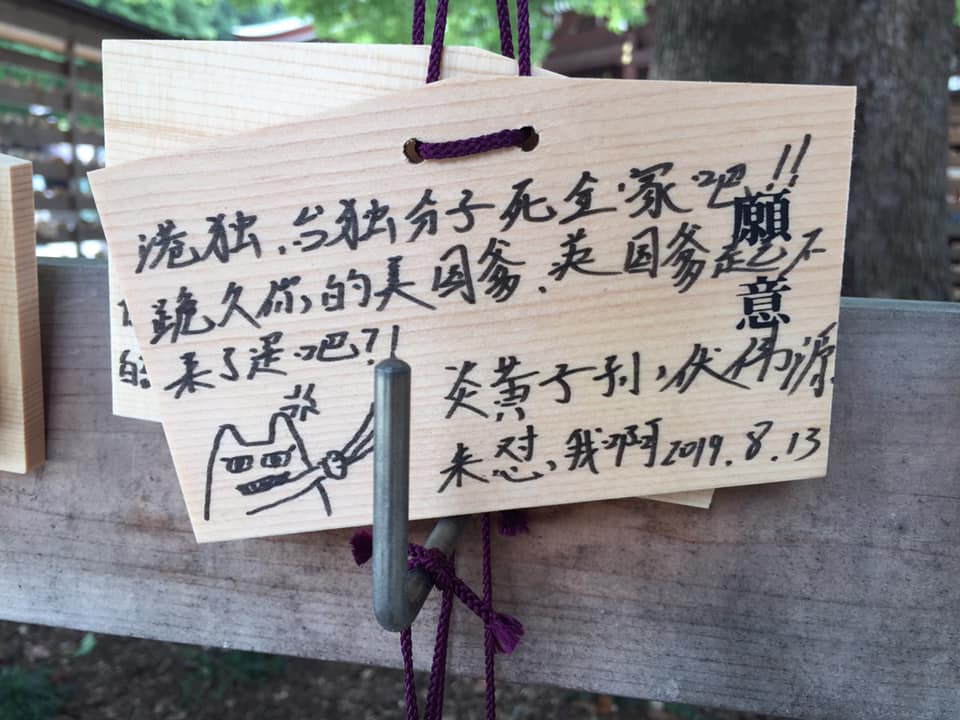 願意
港独、台独分子死全家吧!!
跪久你的美国爹、英国爹起不
来了是吧?!
炎黄子孙,伏伟源
来怼我啊 2019.8.13
的